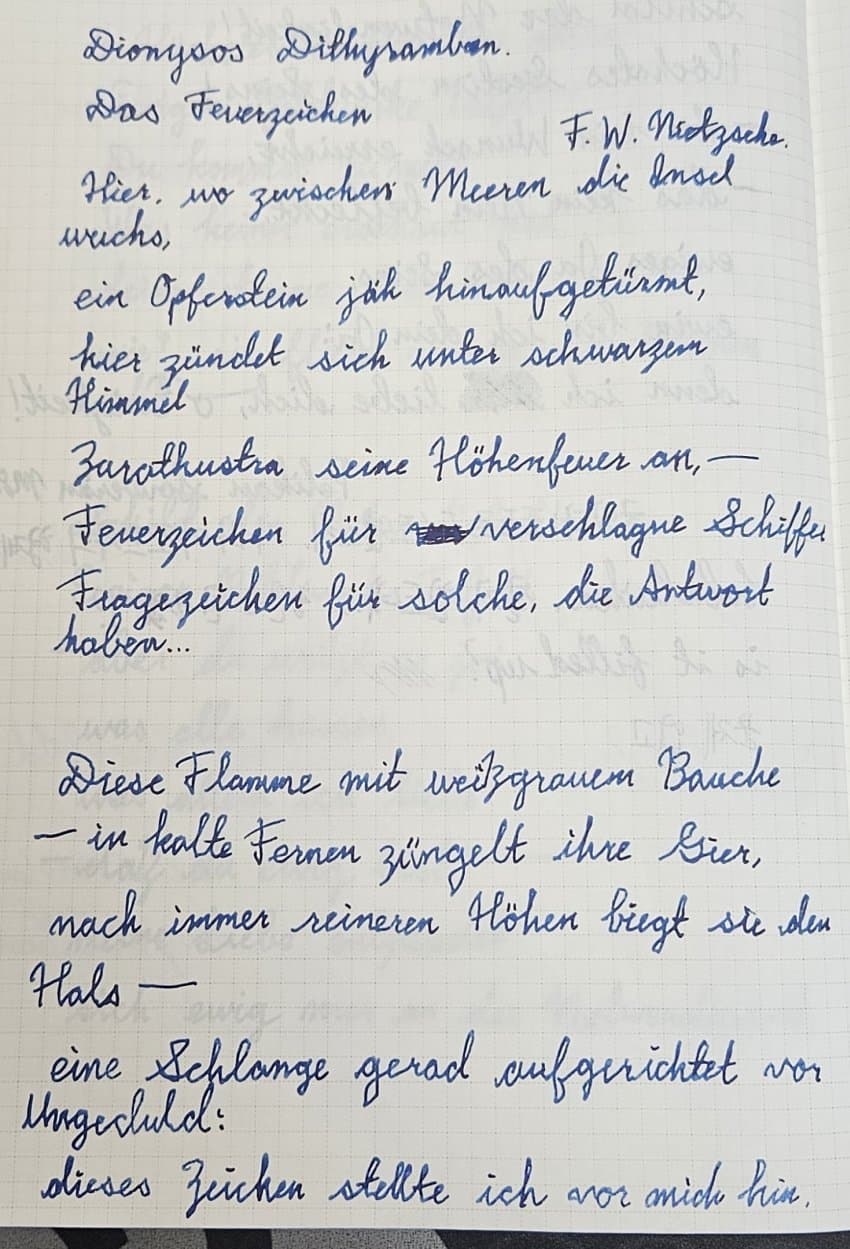 Dionysos Dithyramben.
Das Feuerzeichen
F. W. Nietzsche.
Hier, wo zwischen Meeren die Insel
wuchs,
ein Opferstein jäh hinaufgetürmt,
hier zündet sich unter schwarzem
Himmel
Zarathustra seine Höhenfeuer an, —
Feuerzeichen für verschlagne Schiffer
Fragezeichen für solche, die Antwort
haben...
Diese Flamme mit weißgrauem Bauche
— in kalte Fernen züngelt ihre Gier,
nach immer reineren Höhen biegt sie den
Hals —
eine Schlange gerad aufgerichtet vor
Ungeduld:
dieses Zeichen stellte ich vor mich hin.